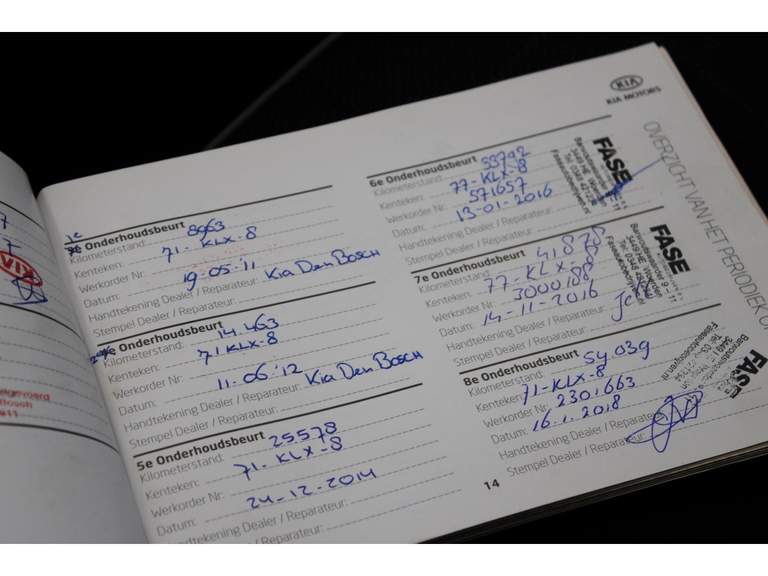 KIA
KIA MOTORS
OVERZICHT VAN HET PERIODIEK O
1e
Onderhoudsbeurt
Kilometerstand: 8963
Kenteken: 71-KLX-8
Werkorder Nr.
Datum: 19-05-'11
Handtekening Dealer / Reparateur: Kia Den Bosch
Stempel Dealer / Reparateur:
Onderhoudsbeurt
Kilometerstand: 14.463
Kenteken: 71 KLX-8
Werkorder Nr.
Datum: 11-06-'12
Handtekening Dealer / Reparateur: Kia Den Bosch
Stempel Dealer / Reparateur:
5e Onderhoudsbeurt
Kilometerstand: 25578
Kenteken: 71-KLX-8
Werkorder Nr.
Datum: 24-12-2014
Handtekening Dealer / Reparateur:
6e Onderhoudsbeurt
Kilometerstand: 33792
Kenteken: 77-KLX-8
Werkorder Nr. 571657
Datum: 13-01-2016
Handtekening Dealer / Reparateur:
Stempel Dealer / Reparateur:
FASE
7e Onderhoudsbeurt
Kilometerstand: 41878
Kenteken: 77-KLX-8
Werkorder Nr. 3000188
Datum: 14-11-2016
Handtekening Dealer / Reparateur:
Stempel Dealer / Reparateur:
FASE
8e Onderhoudsbeurt
Kilometerstand: 54039
Kenteken: 71-KLX-8
Werkorder Nr. 2301663
Datum: 16.1.2018
Handtekening Dealer / Reparateur:
Stempel Dealer / Reparateur:
FASE
14